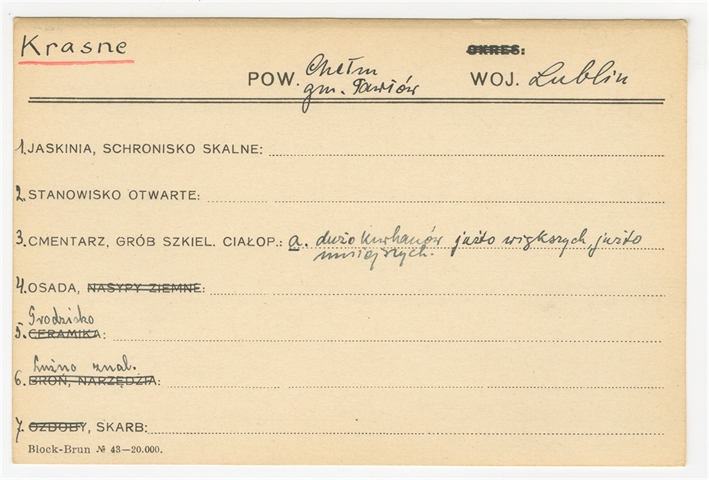 Krasne
OKRES:
POW. Chełm WOJ. Lublin
gm. Pawłów
1. JASKINIA, SCHRONISKO SKALNE:
2. STANOWISKO OTWARTE:
3. CMENTARZ, GRÓB SZKIEL. CIAŁOP.: a. dużo kurhanów jużto większych, jużto
mniejszych.
4. OSADA, NASYPY ZIEMNE:
Grodzisko
5. CERAMIKA:
Luźno znal.
6. BROŃ, NARZĘDZIA:
7. OZDOBY, SKARB:
Block-Brun № 43—20.000.